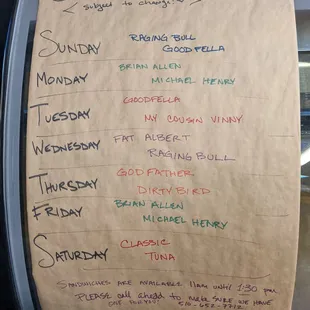 subject to change!
SUNDAY RAGING BULL
GOODFELLA
MONDAY BRIAN ALLEN
MICHAEL HENRY
TUESDAY GOODFELLA
MY COUSIN VINNY
WEDNESDAY FAT ALBERT
RAGING BULL
THURSDAY GODFATHER
DIRTY BIRD
FRIDAY BRIAN ALLEN
MICHAEL HENRY
SATURDAY CLASSIC
TUNA
SANDWICHES ARE AVAILABLE 11am until 1:30 pm
PLEASE call ahead to make sure we have
one for you! 516-